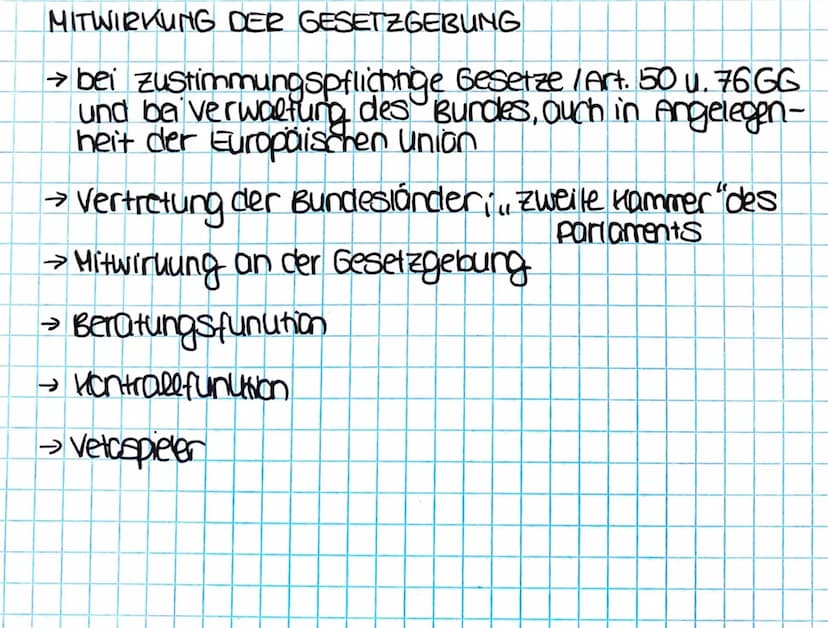 MITWIRKUNG DER GESETZGEBUNG
→ bei zustimmungspflichtige Gesetze / Art. 50 u. 76 GG
und bei Verwaltung des Bundes, auch in Angelegen-
heit der Europäischen Union
→ Vertretung der Bundesländer; „zweite Kammer“ des
Parlaments
→ Mitwirkung an der Gesetzgebung
→ Beratungsfunktion
→ Kontrollfunktion
→ Vetospieler